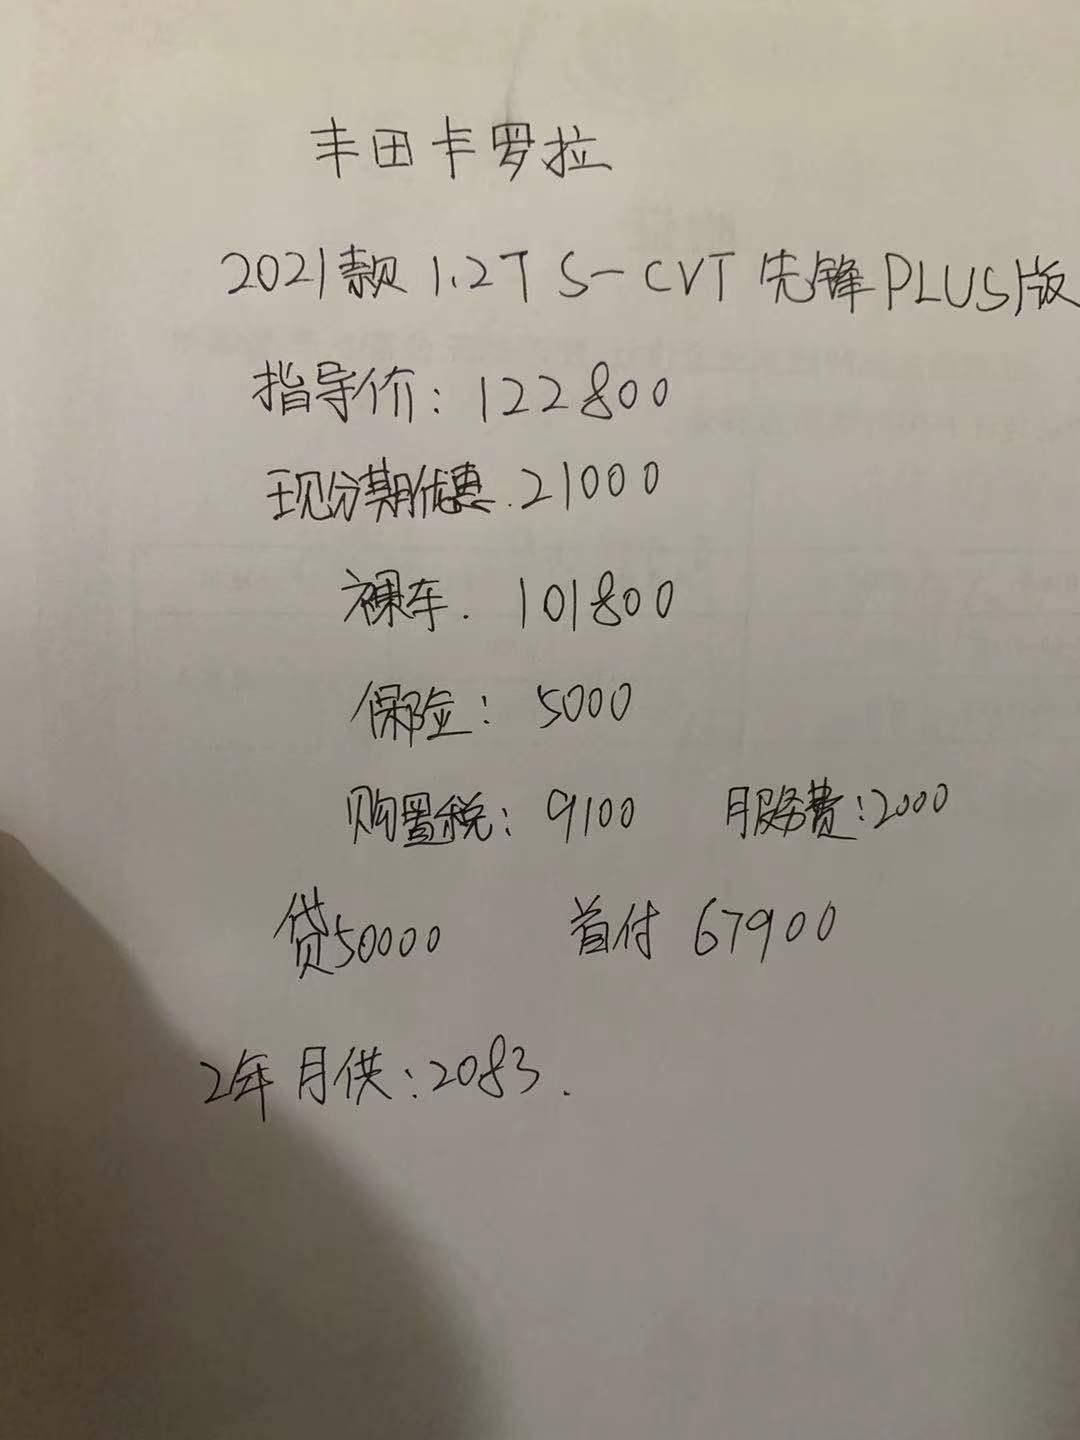 丰田卡罗拉
2021款 1.2T S-CVT 先锋PLUS版
指导价：122800
现分期优惠.21000
裸车. 101800
保险：5000
购置税：9100 服务费：2000
贷50000 首付 67900
2年月供：2083.